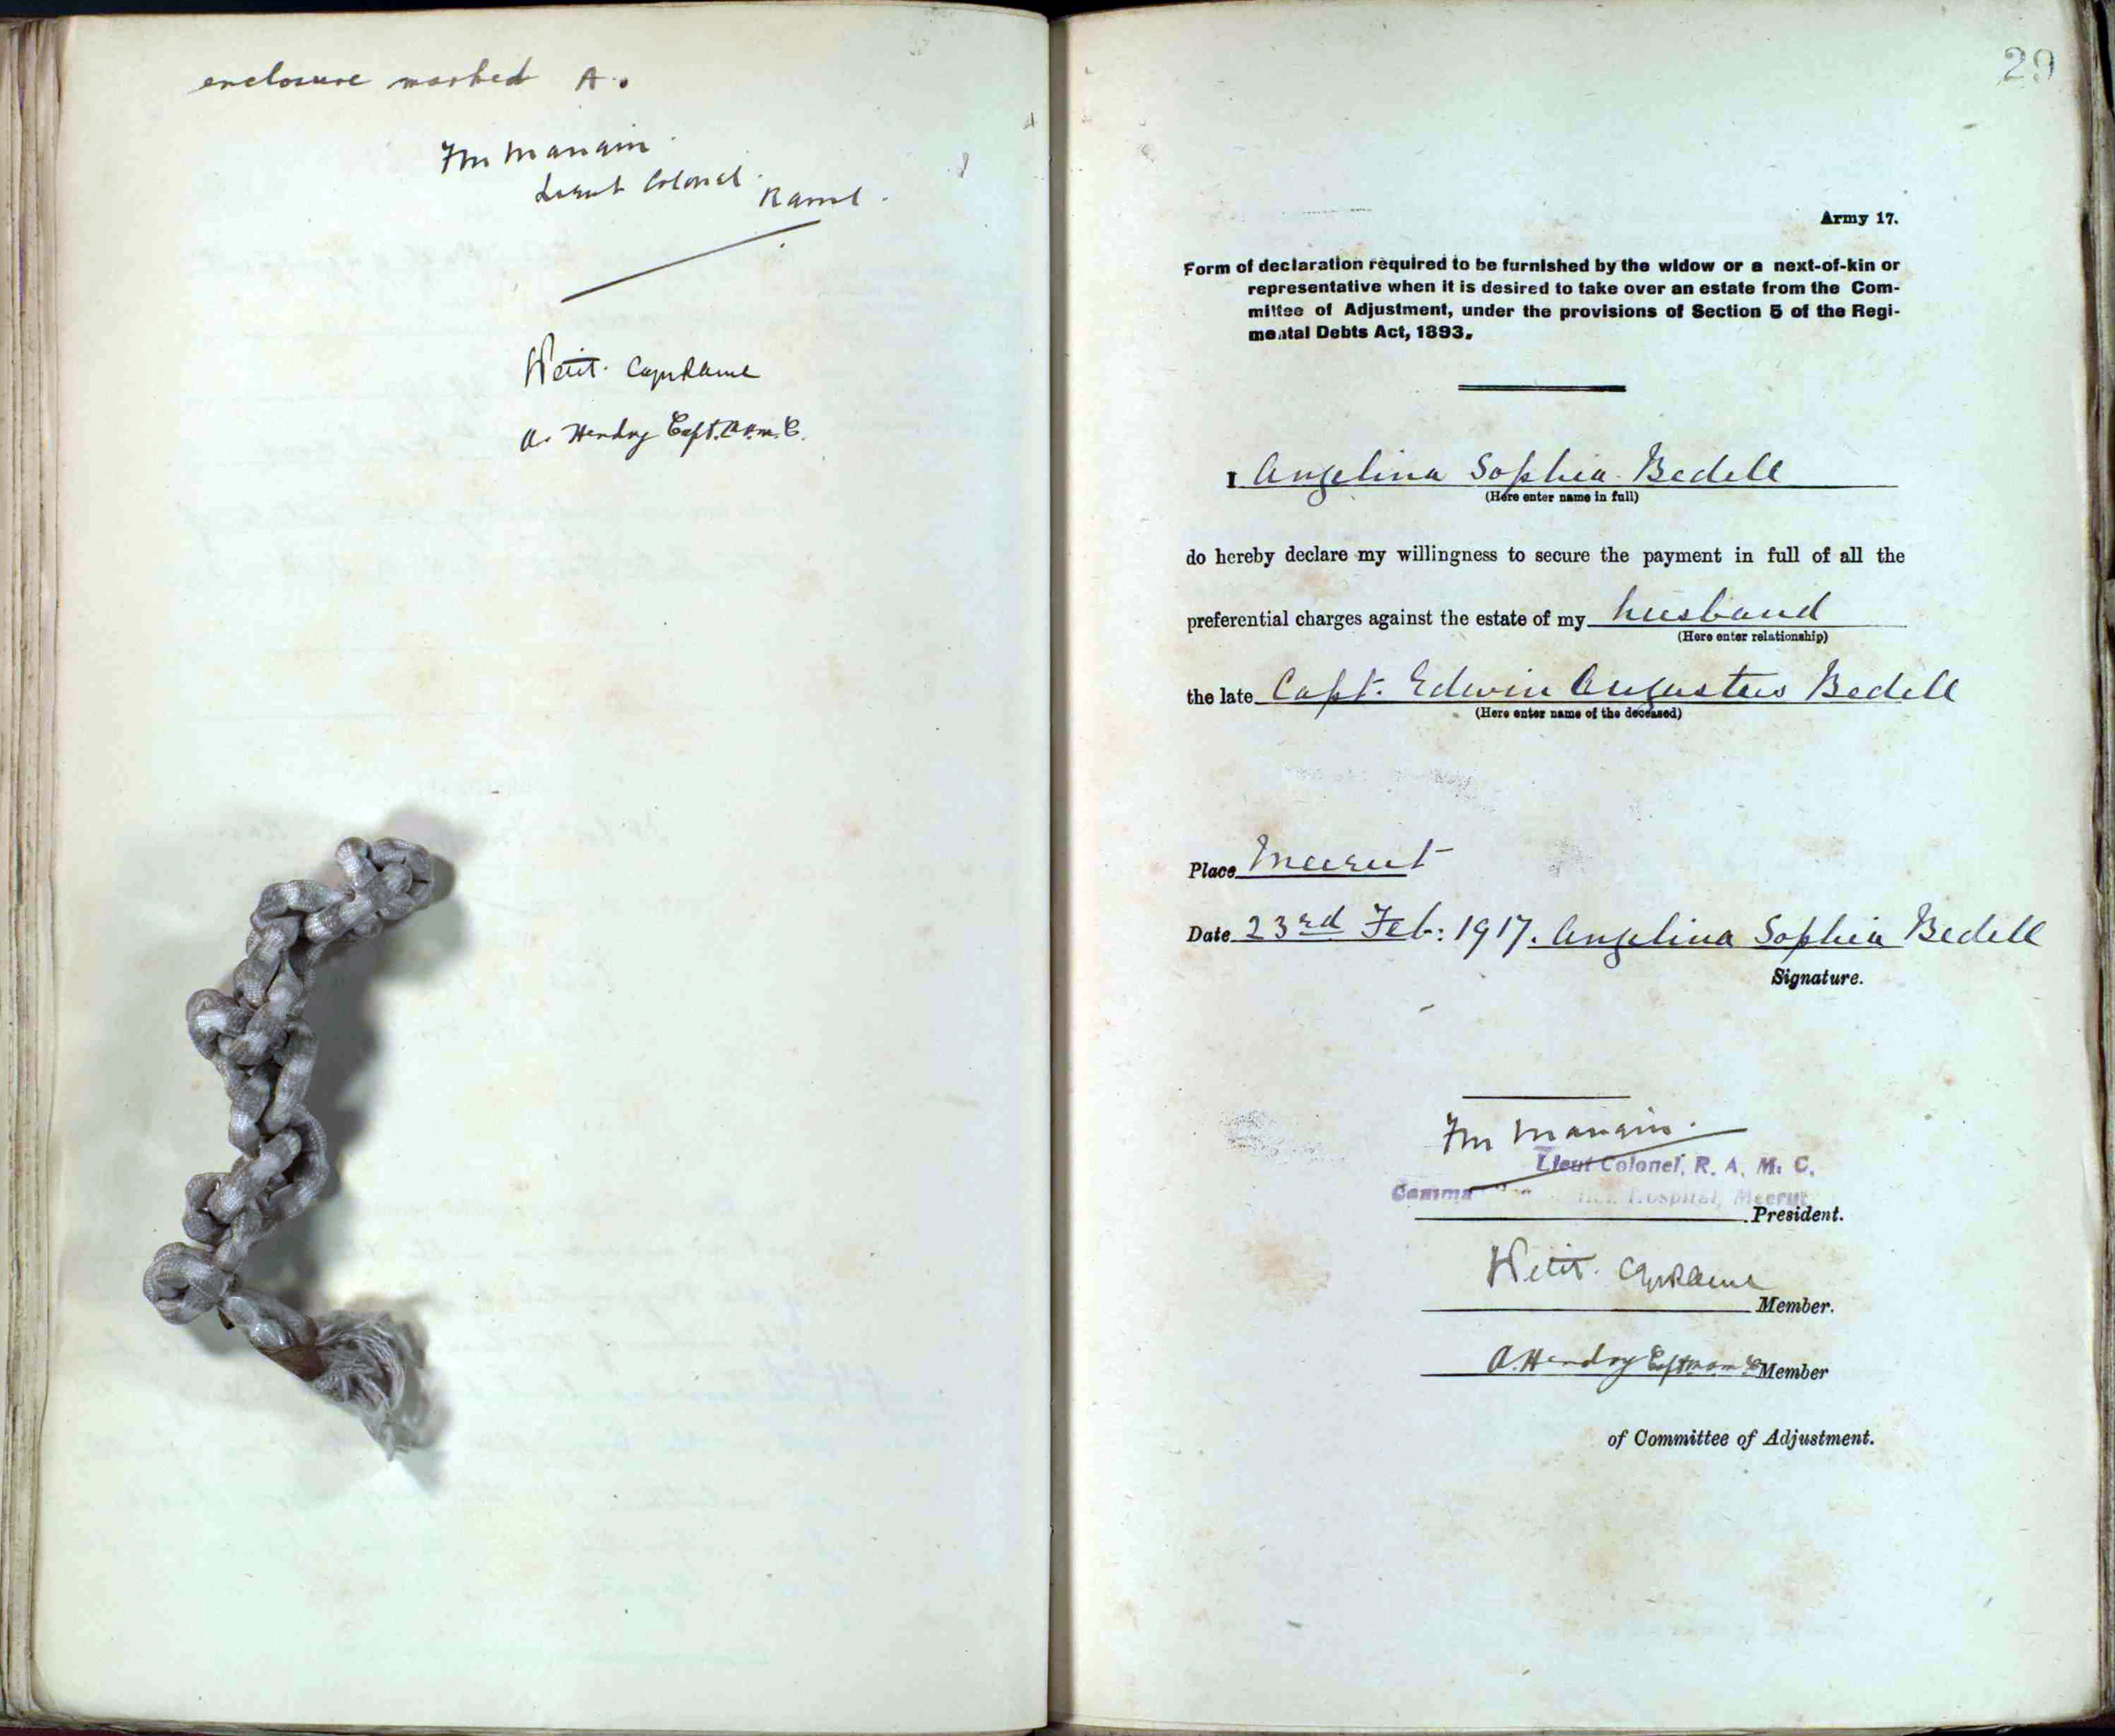 enclosure marked A.
Lieut Colonel.
Capt
A. Hendry Capt. R.A.M.C.
29
Army 17.
Form of declaration required to be furnished by the widow or a next-of-kin or
representative when it is desired to take over an estate from the Com-
mittee of Adjustment, under the provisions of Section 5 of the Regi-
mental Debts Act, 1893.
I Angelina Sophia Bedell
(Here enter name in full)
do hereby declare my willingness to secure the payment in full of all the
preferential charges against the estate of my husband
(Here enter relationship)
the late Capt. Edwin Augustus Bedell
(Here enter name of the deceased)
Place Meerut
Date 23rd Feb: 1917. Angelina Sophia Bedell
Signature.
Lieut Colonel, R. A. M. C.
Hospital, Meerut
President.
Member.
A. Hendry Capt Member
of Committee of Adjustment.